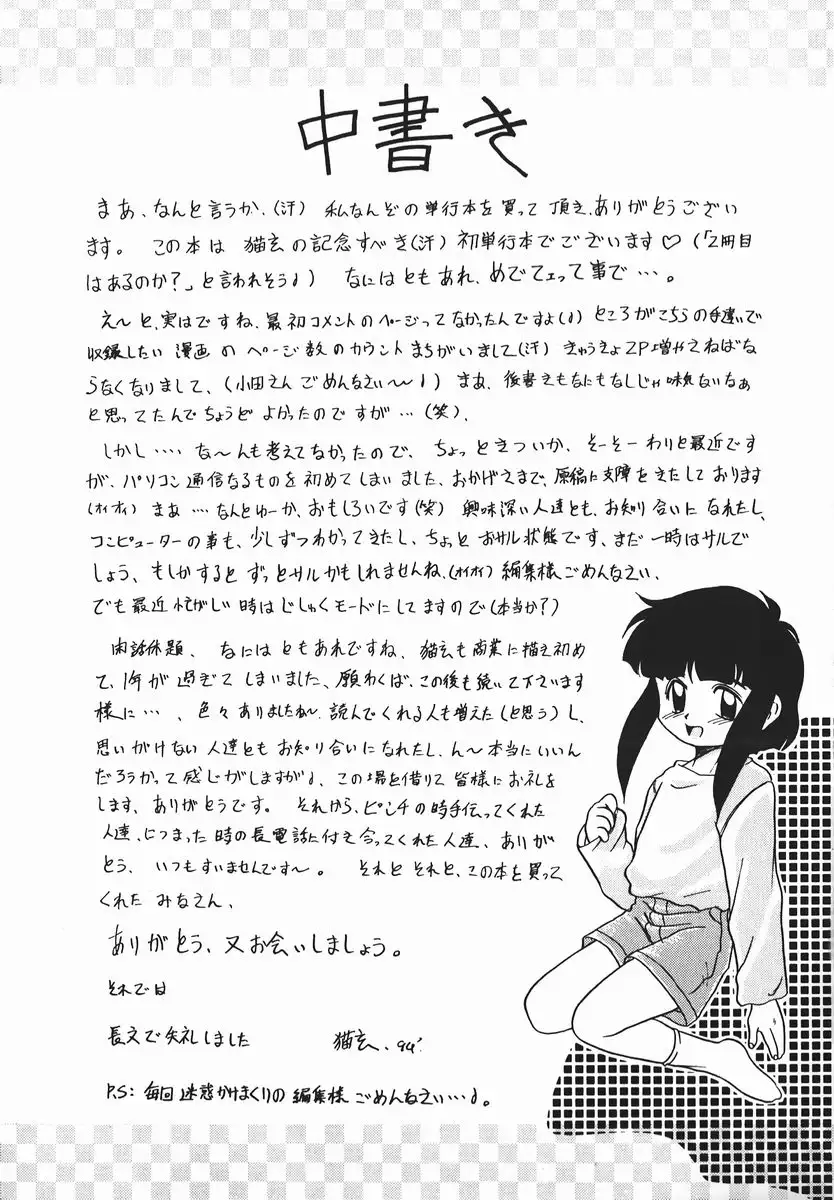 中書き
まあ、なんと言うか、(汗) 私なんぞの単行本を買って頂き、ありがとうござい
ます。この本は 猫玄の記念すべき(汗)初単行本でございます♡(「2冊目
はあるのか?」と言われそう♪) なにはともあれ、めでてェって事で…。
え〜と、実はですね、最初コメントのページってなかったんですよ(♪)ところがこちらの手違いで
収録したい 漫画 の ページ数のカウント まちがいまして(汗) きゅうきょ2P増やさねばな
らなくなりまして、(小田さん ごめんなさい〜♪) まあ、後書きもなにもなしじゃ味気ないなぁ
と思ってたんで ちょうど よかったのですが…(笑)、
しかし‥‥ な〜んも考えてなかったので、ちょっときついか、そーそーわりと最近です
が、パソコン通信なるものを初めてしまいました、おかげさまで、原稿に支障をきたしております
(オイオイ) まあ …なんとゆーか、おもしろいです(笑) 興味深い人達とも、お知り合いに なれたし、
コンピューターの事も、少しずつわかってきたし、ちょっと おサル状態です、まだ 一時はサルで
しょう、もしかすると ずっとサルかもしれませんね、(オイオイ) 編集様ごめんなさい、
でも最近 忙がしい時はじしゅくモードにしてますので(本当か?)
閑話休題、 なには ともあれですね、猫玄も商業に描き初め
て、1年が 過ぎて しまいました、願わくば、この後も続いて下さいます
様に…、色々 ありましたね〜、読んでくれる人も増えた(と思う)し、
思いがけない 人達とも お知り合いになれたし、ん〜本当にいいん
だろうかって感じがしますが♪、この場を借りて 皆様にお礼を
します、ありがとうです。 それから、ピンチの時手伝ってくれた
人達、につまった 時の長電話に付き合ってくれた人達、ありが
とう、いつもすいませんです〜。 それと それと、この本を買って
くれた みなさん、
ありがとう、又お会いしましょう。
それでは
長文で失礼しました 猫玄、94'.
P.S: 毎回 迷惑かけまくりの 編集様 ごめんなさい…♪。